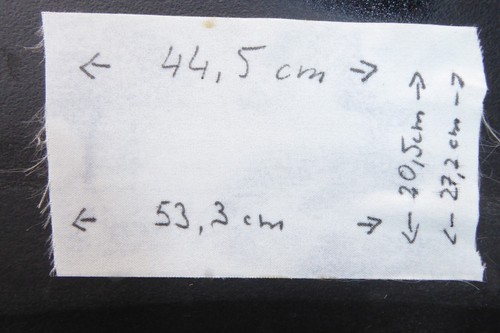 ← 44,5 cm →
← 53,3 cm →
← 20,5cm →
← 27,2 cm →